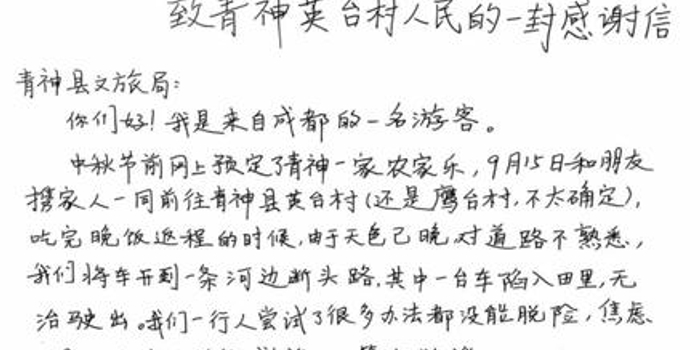 致青神英台村人民的一封感谢信
青神县文旅局：
你们好！我是来自成都的一名游客。
中秋节前网上预定了青神一家农家乐，9月15日和朋友
携家人一同前往青神县英台村（还是鹰台村，不太确定），
吃完晚饭返程的时候，由于天色已晚，对道路不熟悉，
我们将车开到一条河边断头路，其中一台车陷入田里，无
治驶出。我们一行人尝试了很多办法都没能脱险，焦虑